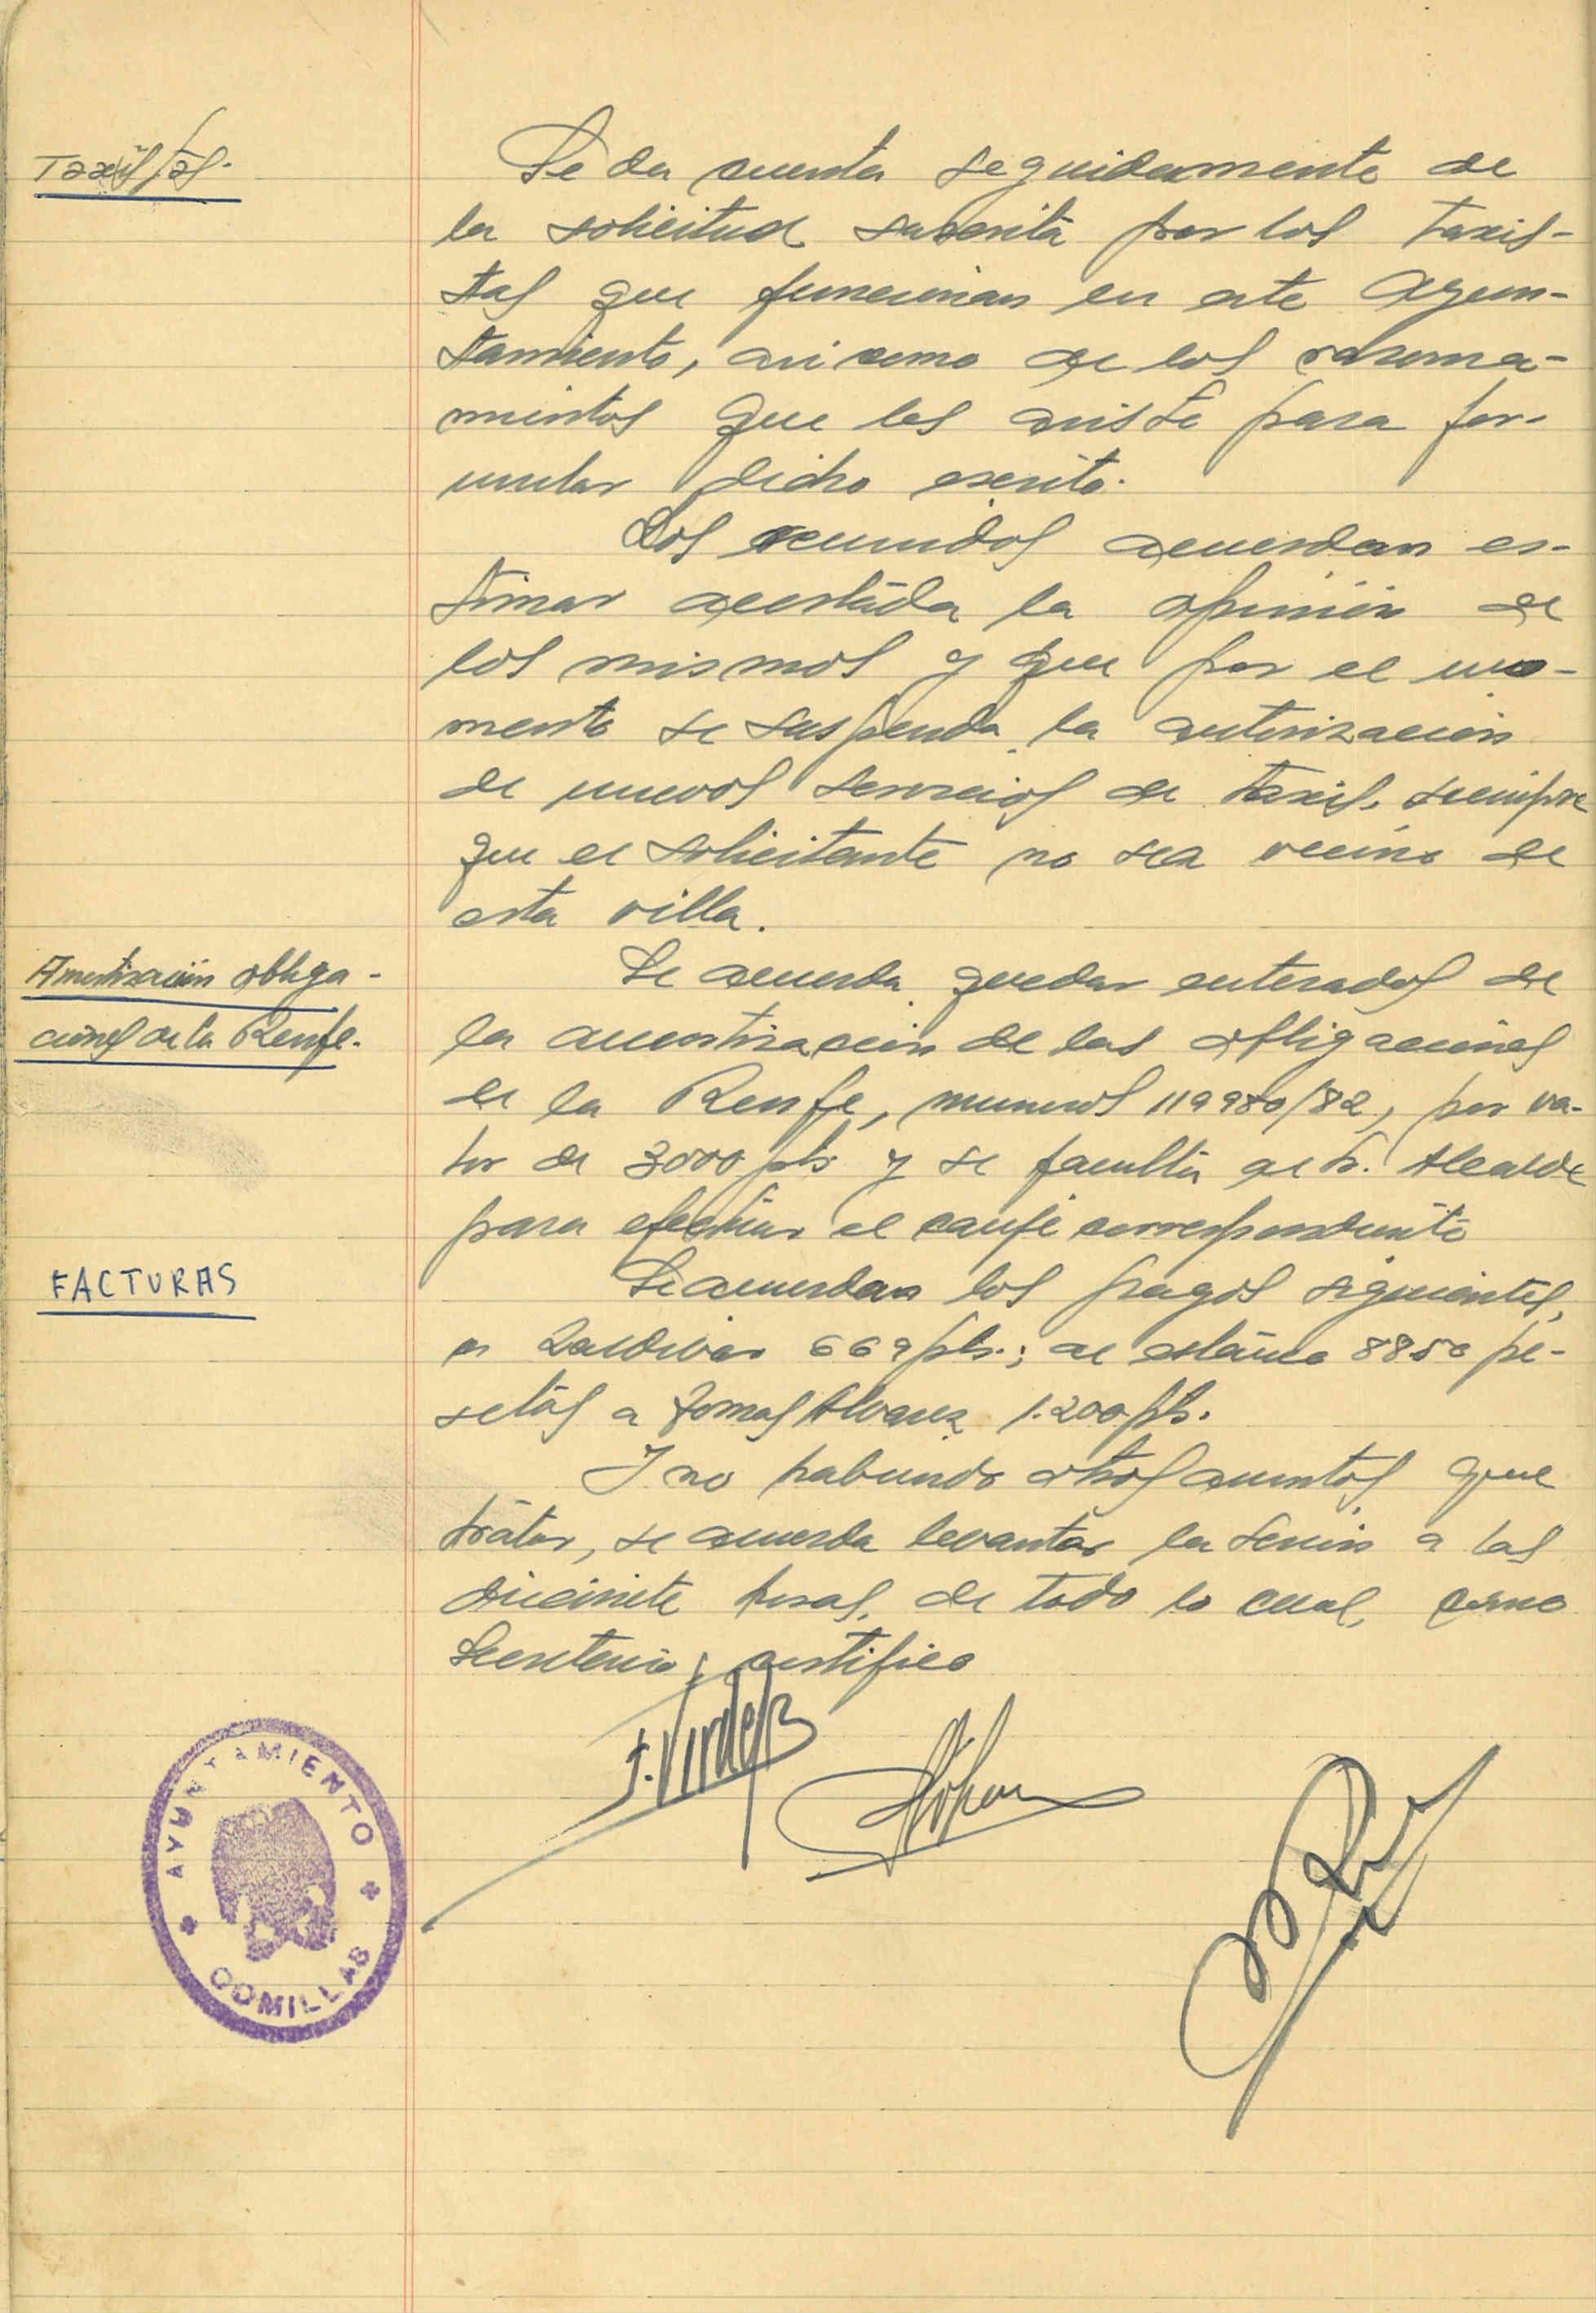 Taxistas.
Se da cuenta seguidamente de
la solicitud suscrita por los taxis-
tas que funcionan en este Ayun-
tamiento, asi como de los razona-
mientos que les asiste para for-
mular dicho escrito.
Los reunidos acuerdan es-
timar acertada la opinión de
los mismos y que por el mo-
mento se suspenda la autorización
de nuevos servicios de taxis, siempre
que el solicitante no sea vecino de
esta villa.
Amortización obliga-
ciones de la Renfe.
Se acuerda quedar enterados de
la amortización de las obligaciones
de la Renfe, numeros 119980/82, por va-
lor de 3000 pts y se faculta al Sr. Alcalde
para efectuar el canje correspondiente
FACTURAS
Se acuerdan los pagos siguientes,
a Zaldivar 669 pts.; al estanco 8850 pe-
setas a Tomas Alvarez 1.200 pts.
Y no habiendo otros asuntos que
tratar, se acuerda levantar la sesión a las
diecisiete horas, de todo lo cual, como
Secretario, certifico
AYUNTAMIENTO
COMILLAS